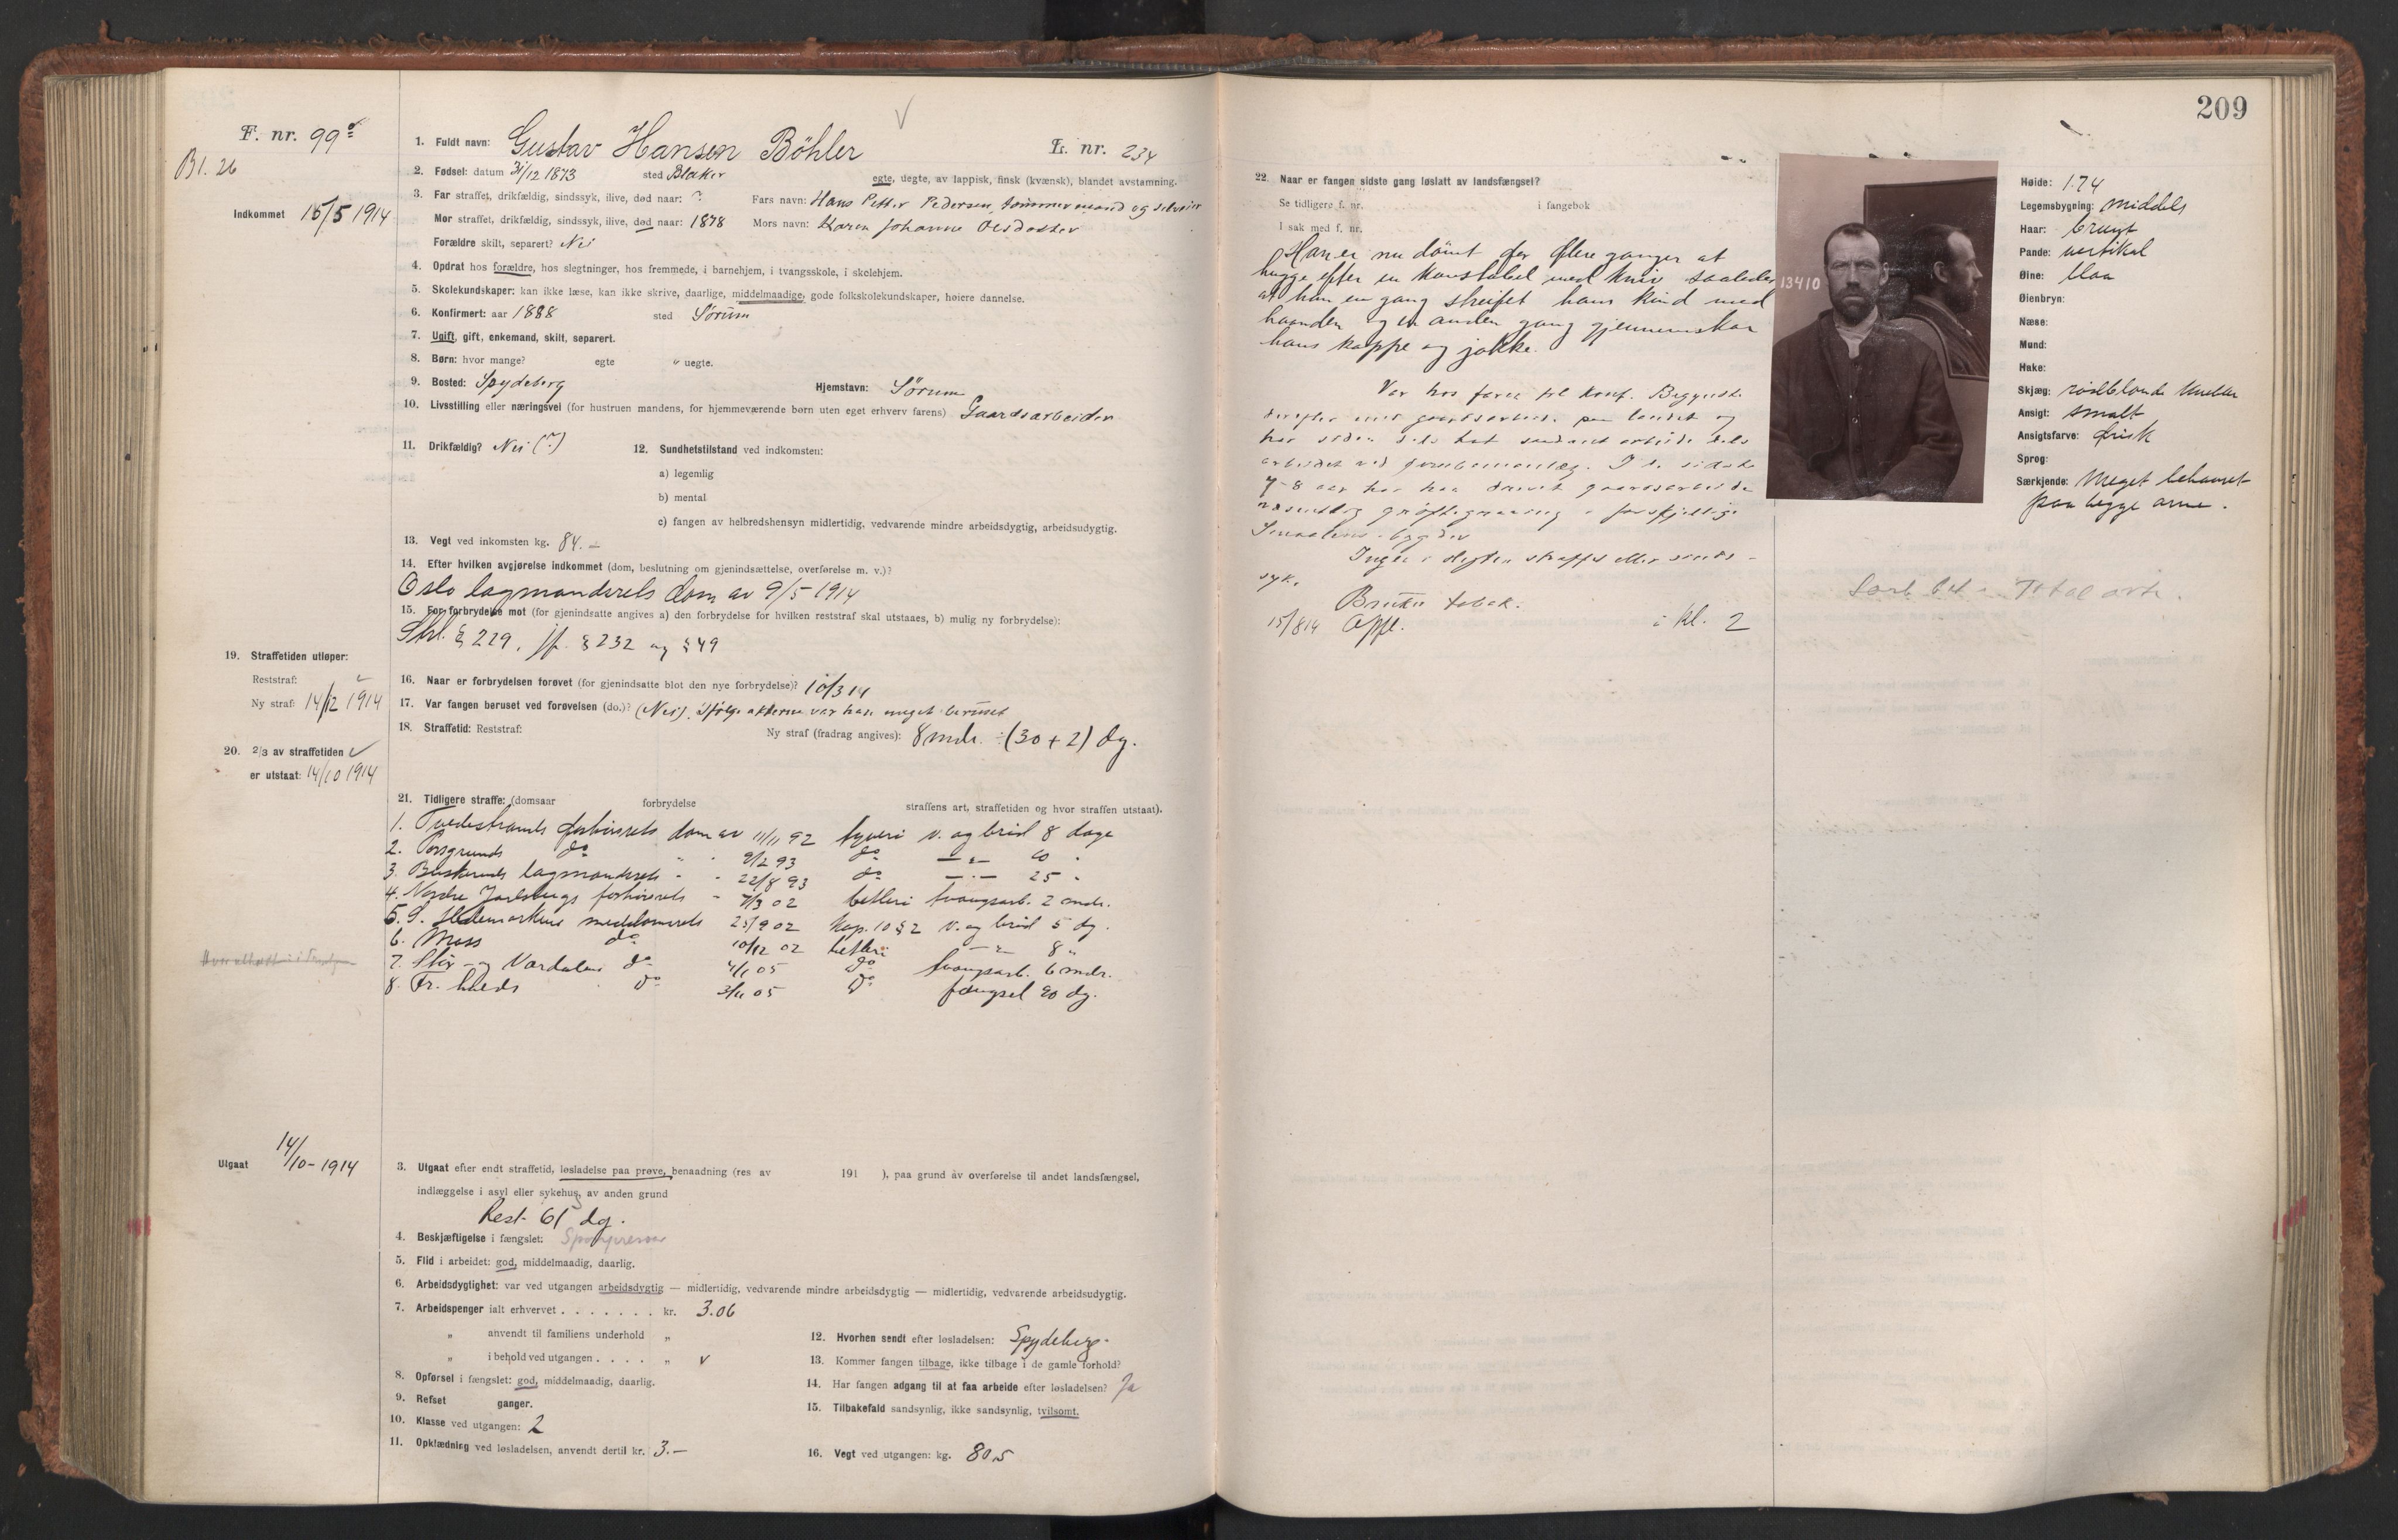 F. nr. 99
Bl. 26
Indkommet 15/5 1914
1. Fuldt navn: Gustav Hansen Böhler
L. nr. 234
2. Fødsel: datum 31/12 1873 sted Blaker
egte, uegte, av lappisk, finsk (kvænsk), blandet avstamning.
3. Far straffet, drikfældig, sindssyk, ilive, død naar: ? Fars navn: Hans Petter Pedersen, tømmermand og selveier
Mor straffet, drikfældig, sindssyk, ilive, død naar: 1878 Mors navn: Karen Johanne Olsdatter
Forældre skilt, separert? Nei
4. Opdrat hos forældre, hos slegtninger, hos fremmede, i barnehjem, i tvangsskole, i skolehjem.
5. Skolekundskaper: kan ikke læse, kan ikke skrive, daarlige, middelmaadige, gode folkskolekundskaper, høiere dannelse.
6. Konfirmert: aar 1888 sted Sörum
7. Ugift, gift, enkemand, skilt, separert.
8. Børn: hvor mange? egte " uegte.
9. Bosted: Spydeberg Hjemstavn: Sörum
10. Livsstilling eller næringsvei (for hustruen mandens, for hjemmeværende børn uten eget erhverv farens) Gaardsarbeider
11. Drikfældig? Nei (?) 12. Sundhetstilstand ved indkomsten:
a) legemlig
b) mental
c) fangen av helbredshensyn midlertidig, vedvarende mindre arbeidsdygtig, arbeidsudygtig.
13. Vegt ved inkomsten kg. 84.-
14. Efter hvilken avgjørelse indkommet (dom, beslutning om gjenindsættelse, overførelse m. v.)?
Oslo lagmandsrets dom av 9/5 1914
15. For forbrydelse mot (for gjenindsatte angives a) den forbrydelse for hvilken reststraf skal utstaaes, b) mulig ny forbrydelse):
Strl. § 229, jf. § 232 og § 49
19. Straffetiden utløper:
Reststraf:
Ny straf: 14/12 1914
16. Naar er forbrydelsen forøvet (for gjenindsatte blot den nye forbrydelse)? 10/3 14
17. Var fangen beruset ved forøvelsen (do.)? (Nei). Ifølge akterne var han meget beruset
18. Straffetid: Reststraf: Ny straf (fradrag angives): 8 mdr. ÷ (30 + 2) dg.
20. 2/3 av straffetiden
er utstaat: 14/10 1914
21. Tidligere straffe: (domsaar forbrydelse straffens art, straffetiden og hvor straffen utstaat).
1. Tvedestrands forhörsrets dom av 11/11 92 tyveri v. og bröd 8 dage
2. Porsgrunds do " " 9/2 93 do — " — 10 "
3. Buskeruds lagmandsrets " " 22/8 93 do — " — 25 "
4. Nordre Jarlsbergs forhörsrets " 7/3 02 betleri tvangsarb. 2 mdr.
5. S. Hedemarkens meddomsrets 25/9 02 Kap. 10 § 2 v. og bröd 5 dg.
6. Moss do 10/12 02 betleri — " — 8 "
7. Stör- og Værdalens do 4/1 05 do tvangsarb. 6 mdr.
8. Fr. halds do 3/11 05 do fængsel 90 dg.
Utgaat 14/10-1914
3. Utgaat efter endt straffetid, løsladelse paa prøve, benaadning (res av 191 ), paa grund av overførelse til andet landsfængsel,
indlæggelse i asyl eller sykehus, av anden grund
Rest 61 dg.
4. Beskjæftigelse i fængslet:
5. Flid i arbeidet: god, middelmaadig, daarlig.
6. Arbeidsdygtighet: var ved utgangen arbeidsdygtig — midlertidig, vedvarende mindre arbeidsdygtig — midlertidig, vedvarende arbeidsudygtig.
7. Arbeidspenger ialt erhvervet . . . . . . . kr. 3.06
" anvendt til familiens underhold "
" i behold ved utgangen . . . . "
8. Opførsel i fængslet: god, middelmaadig, daarlig.
9. Refset ganger.
10. Klasse ved utgangen: 2
11. Opklædning ved løsladelsen, anvendt dertil kr. 3.-
12. Hvorhen sendt efter løsladelsen: Spydeberg
13. Kommer fangen tilbage, ikke tilbage i de gamle forhold?
14. Har fangen adgang til at faa arbeide efter løsladelsen? Ja
15. Tilbakefald sandsynlig, ikke sandsynlig, tvilsomt.
16. Vegt ved utgangen: kg. 80.5
209
22. Naar er fangen sidste gang løslatt av landsfængsel?
Se tidligere f. nr. i fangebok
I sak med f. nr.
Han er nu dömt for flere ganger at
hugge efter en konstabel med kniv saaledes
at han en gang streifet hans kind med
haanden og en anden gang gjennemskar
hans kappe og jakke.
Var hos faren til konf. Begyndte
derefter med gaardsarbeide paa landet og
har siden dels hat saadant arbeide dels
arbeidet ved jernbaneanlæg. I de sidste
7-8 aar har han drevet gaardsarbeide
væsentlig gröftegravning i forskjellige
Smaalens-bygder
Ingen i slegten straffet eller sinds-
syk.
Bruker tobak.
15/8 14 Opfl. i kl. 2
13410
Høide: 1.74
Legemsbygning: middels
Haar: brunt
Pande: vertikal
Øine: blaa
Øienbryn:
Næse:
Mund:
Hake:
Skjæg: rödblonde
Ansigt: smalt
Ansigtsfarve: frisk
Sprog:
Særkjende: Meget behaaret
paa begge arme.